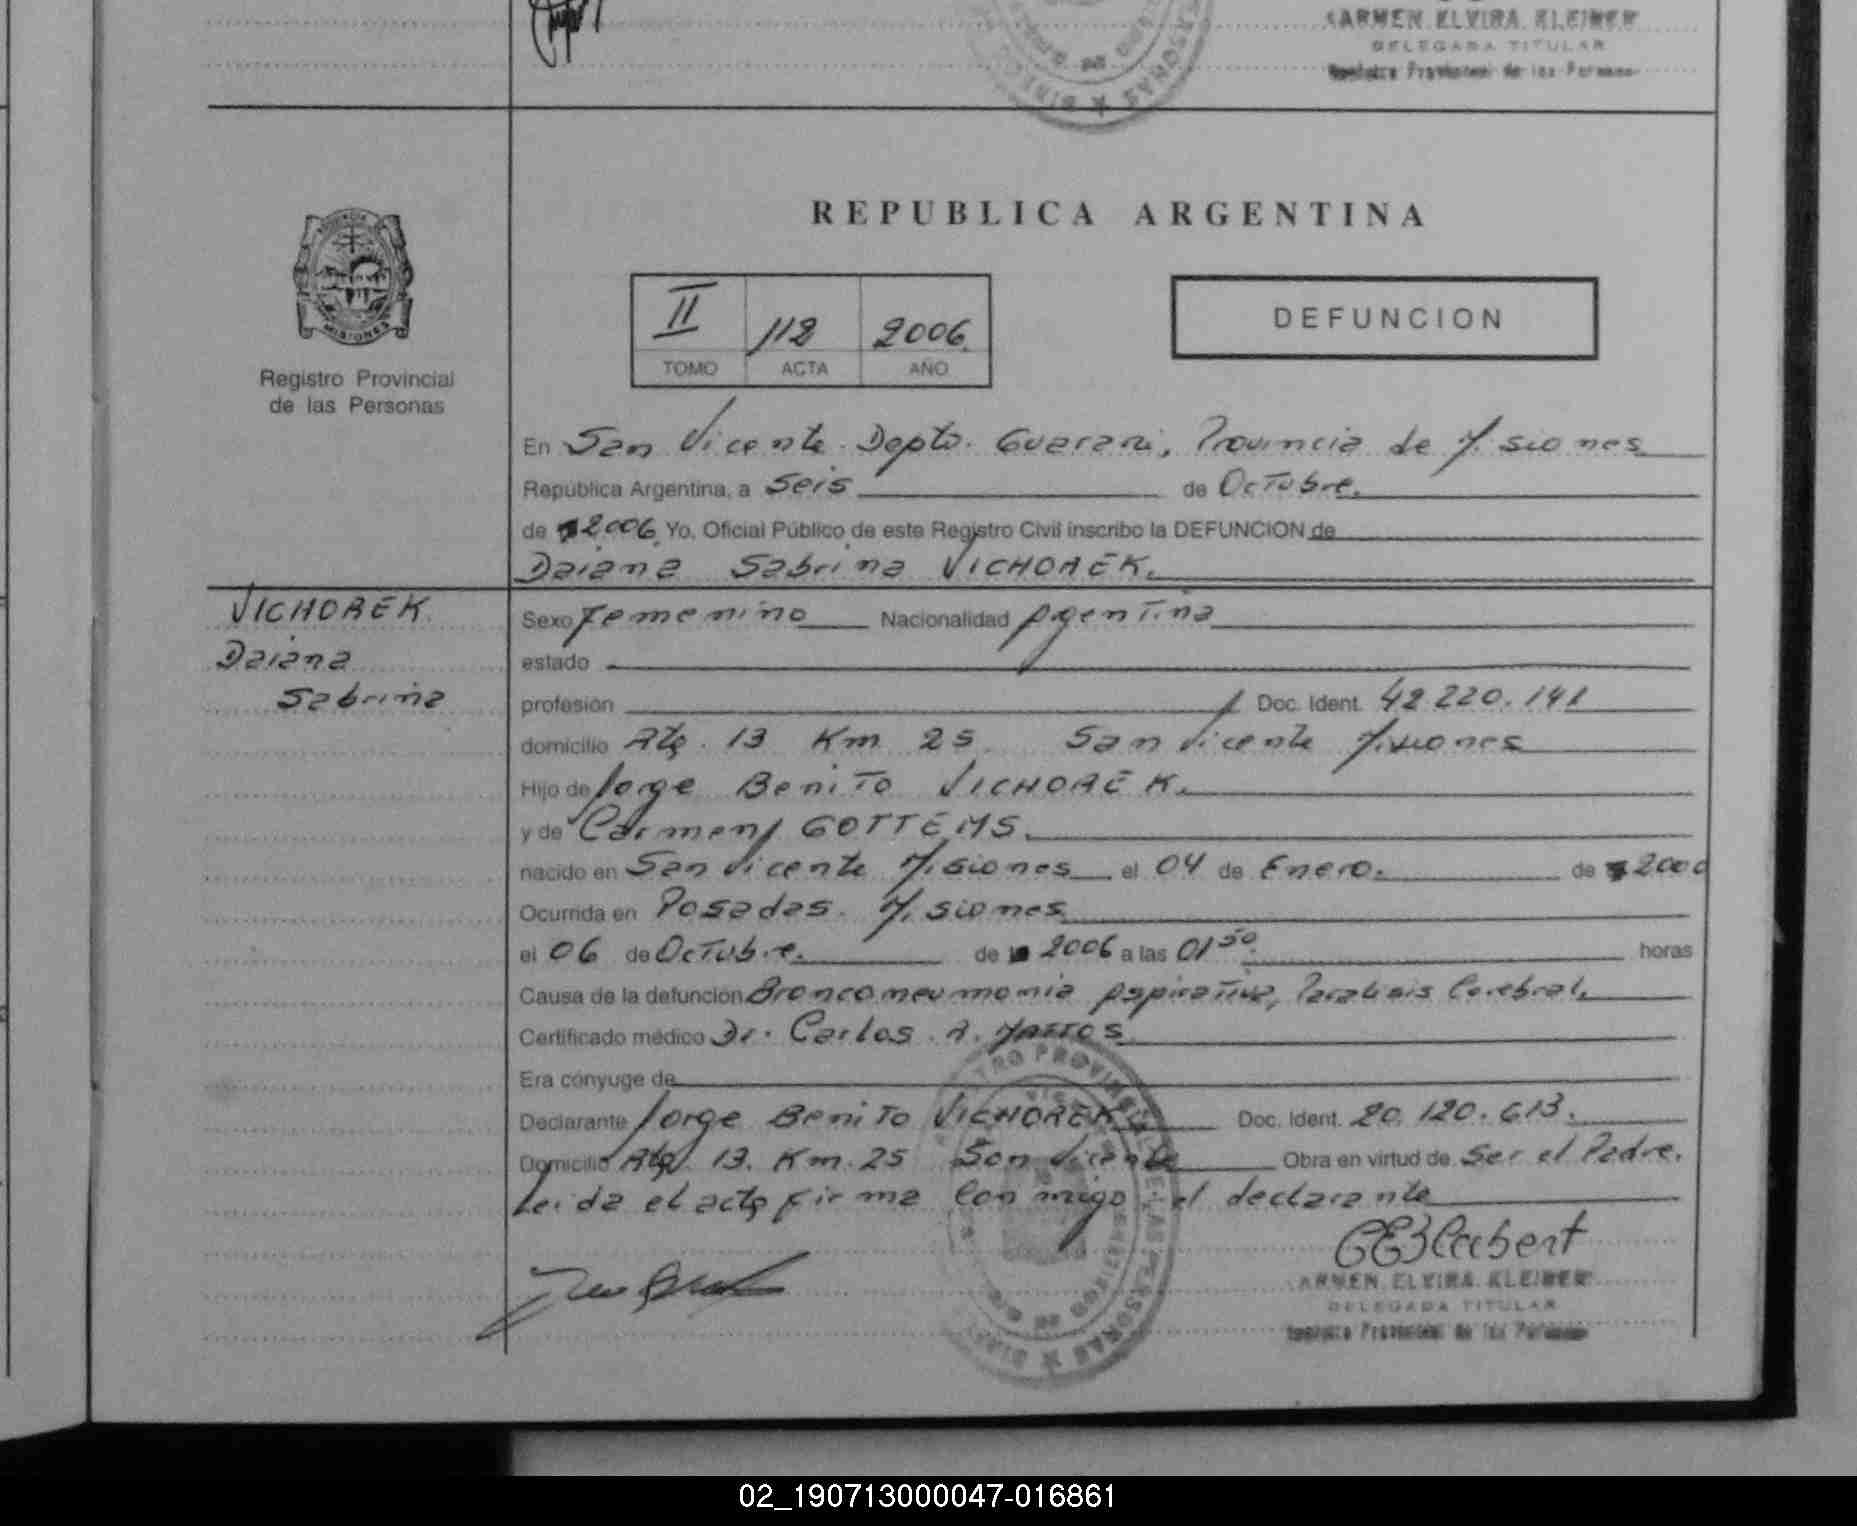 CARMEN ELVIRA KLEINER
DELEGADA TITULAR
Registro Provincial de las Personas
REPUBLICA ARGENTINA
MISIONES
Registro Provincial
de las Personas
II 112 2006
TOMO ACTA AÑO
DEFUNCION
En San Vicente Depto. Guarani, Provincia de Misiones
República Argentina, a Seis de Octubre.
de 2006 Yo, Oficial Público de este Registro Civil inscribo la DEFUNCION de
Daiana Sabrina VICHOREK.
VICHOREK
Daiana
Sabrina
Sexo Femenino Nacionalidad Argentina
estado
profesión Doc. Ident. 42.220.141
domicilio Ruta. 13 Km 25 San Vicente Misiones
Hijo de Jorge Benito VICHOREK.
y de Carmen GOTTEMS.
nacido en San Vicente Misiones el 04 de Enero. de 2000
Ocurrida en Posadas. Misiones
el 06 de Octubre. de 2006 a las 01 50 horas
Causa de la defunción Bronconeumonia Aspirativa, Paralisis Cerebral.
Certificado médico Dr. Carlos A. MATTOS
Era cónyuge de
Declarante Jorge Benito VICHOREK Doc. Ident. 20.120.613.
Domicilio Ruta 13. Km. 25 San Vicente Obra en virtud de Ser el Padre.
Leida el acta firma Conmigo el declarante
CARMEN ELVIRA KLEINER
DELEGADA TITULAR
Registro Provincial de las Personas
02_190713000047-016861